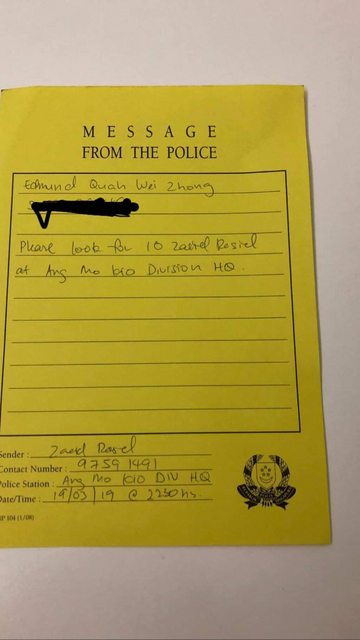 MESSAGE
FROM THE POLICE
Edmund Quah Wei Zhong
Please look for IO
at Ang Mo kio Division HQ.
Sender :
Contact Number : 9759 1491
Police Station : Ang Mo kio DIV HQ
Date/Time : 19/03/19 @ 2230hs.
NP 104 (1/08)